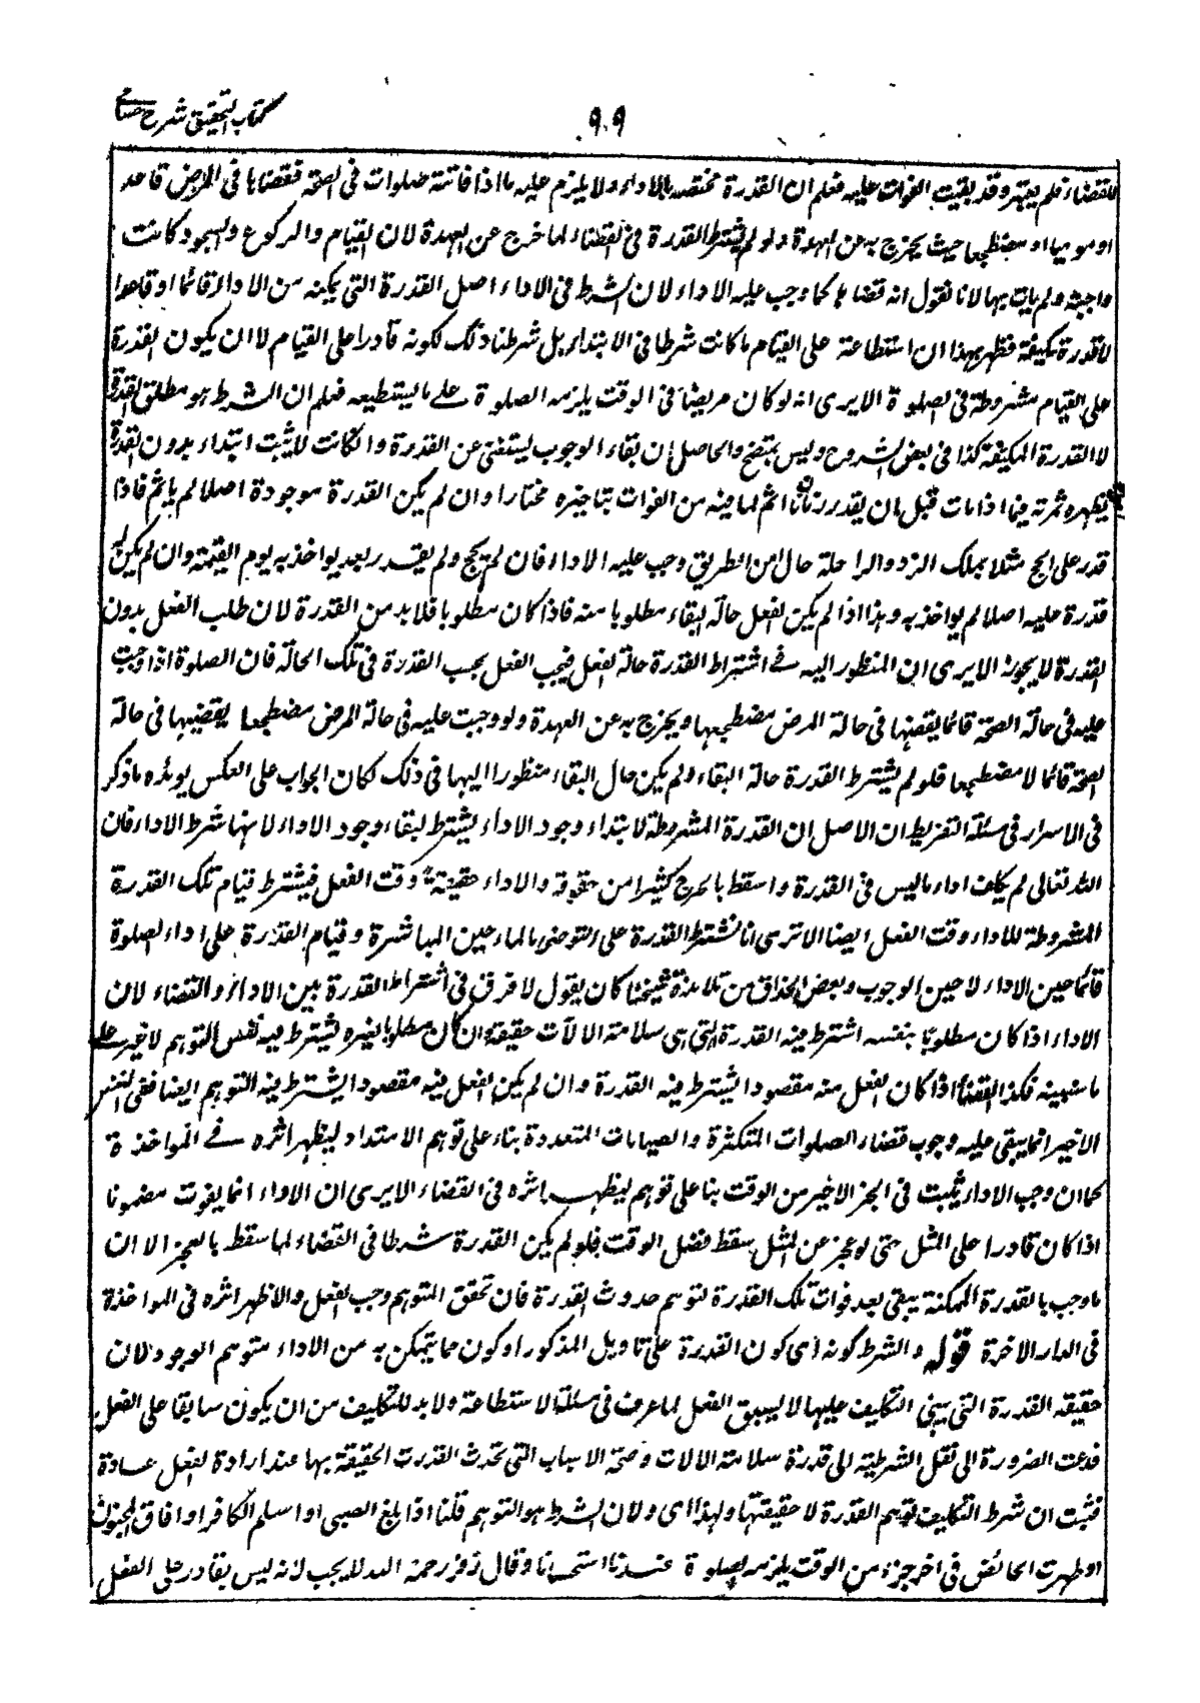 كتاب التحقيق شرح حسامي
٩٩
للقضاء فلم يعتبر وقد بقيت الفوات عليه فعلم ان القدرة مختصة بالاداء ولا يلزم عليه ما اذا فاتته صلوات فى الصحة فقضاها فى المرض قاعدا
او موميا او مضطجعا حيث يخرج به عن العهدة ولو لم يشترط القدرة فى القضاء لما خرج عن العهدة لان القيام والركوع والسجود كانت
واجبة ولم يات بها لانا نقول انه قضاها كما وجب عليه الاداء لان الشرط فى الاداء اصل القدرة التى يمكنه من الاداء قائما او قاعدا
لا قدرة مكيفة فظهر بهذا ان استطاعة على القيام ما كانت شرطا فى الابتداء بل شرطنا ذلك لكونه قادرا على القيام لا ان يكون القدرة
على القيام مشروطة فى الصلوة الا يرى انه لو كان مريضا فى الوقت يلزمه الصلوة على ما يستطيعه فعلم ان الشرط هو مطلق القدرة
لا القدرة المكيفة كذا فى بعض الشروح وليس بمتضح والحاصل ان بقاء الوجوب يستغنى عن القدرة وان كانت لا يثبت ابتداء بدون القدرة
يظهر ثمرته فيما اذا مات قبل ان يقدر ثانيا اثم لما فيه من الفوات بتاخيره مختارا وان لم يكن القدرة موجودة اصلا لم ياثم فاذا
قدر على الحج مثلا بملك الزاد والراحلة حال امن الطريق وجب عليه الاداء فان لم يحج ولم يقدر بعد يواخذ به يوم القيمة وان لم يكن له
قدرة عليه اصلا لم يواخذ به وهذا اذا لم يكن الفعل حالة البقاء مطلوبا منه فاذا كان مطلوبا فلا بد من القدرة لان طلب الفعل بدون
القدرة لا يجوز الا يرى ان المنظور اليه فى اشتراط القدرة حالة الفعل فيجب الفعل بحسب القدرة فى تلك الحالة فان الصلوة اذا وجبت
عليه فى حالة الصحة قائما يقضيها فى حالة المرض مضطجعا ويخرج به عن العهدة ولو وجبت عليه فى حالة المرض مضطجعا يقضيها فى حالة
الصحة قائما لا مضطجعا فلو لم يشترط القدرة حالة البقاء ولم يكن حال البقاء منظورا اليها فى ذلك لكان الجواب على العكس يويده ما ذكر
فى الاسرار فى مسئلة التفريط ان الاصل ان القدرة المشروطة لابتداء وجود الاداء يشترط لبقاء وجود الاداء لانها شرط الاداء فان
الله تعالى لم يكلف اداء ما ليس فى القدرة واسقط بالحرج كثيرا من حقوقه والاداء حقيقة وقت الفعل فيشترط قيام تلك القدرة
المشروطة للاداء وقت الفعل ايضا الا ترى انا نشترط القدرة على التوضى بالماء حين المباشرة وقيام القدرة على اداء الصلوة
قائما حين الاداء لا حين الوجوب وبعض الحذاق من تلامذة شيخنا كان يقول لا فرق فى اشتراط القدرة بين الاداء والقضاء لان
الاداء اذا كان مطلوبا بنفسه اشترط فيه القدرة التى هى سلامة الالات حقيقة وان كان مطلوبا لغيره يشترط فيه نفس التوهم لا غير على
ما نبينه فكذا القضاء اذا كان الفعل منه مقصودا يشترط فيه القدرة وان لم يكن الفعل فيه مقصودا يشترط فيه التوهم ايضا ففى النفس
الاخير انما يبقى عليه وجوب قضاء الصلوات المتكثرة والصيامات المتعددة بناء على توهم الامتداد ليظهر اثره فى المواخذة
كما ان وجب الاداء يثبت فى الجزء الاخير من الوقت بنا على توهم ليظهر اثره فى القضاء الا يرى ان الاداء انما يفوت مضمونا
اذا كان قادرا على المثل حتى لو عجز عن المثل سقط فضل الوقت فلو لم يكن القدرة شرطا فى القضاء لما سقط بالعجز الا ان
ما وجب بالقدرة الممكنة يبقى بعد فوات تلك القدرة لتوهم حدوث القدرة فان تحقق التوهم وجب الفعل والا ظهر اثره فى المواخذة
فى الدار الاخرة قوله والشرط كونه اى كون القدرة على تاويل المذكور او كون ما يتمكن به من الاداء متوهم الوجود لان
حقيقة القدرة التى يبنى التكليف عليها لا يسبق الفعل لما عرف فى مسئلة الاستطاعة ولا بد للتكليف من ان يكون سابقا على الفعل
فدعت الضرورة الى نقل الشرطية الى قدرة سلامة الالات وصحة الاسباب التى تحدث القدرت الحقيقة بها عند ارادة الفعل عادة
فثبت ان شرط التكليف توهم القدرة لا حقيقتها ولهذا اى ولان الشرط هو التوهم قلنا اذا بلغ الصبى او اسلم الكافر او افاق المجنون
او طهرت الحائض فى اخر جزء من الوقت يلزمه الصلوة عندنا استحسانا وقال زفر رحمه الله لا يجب لانه ليس بقادر على الفعل